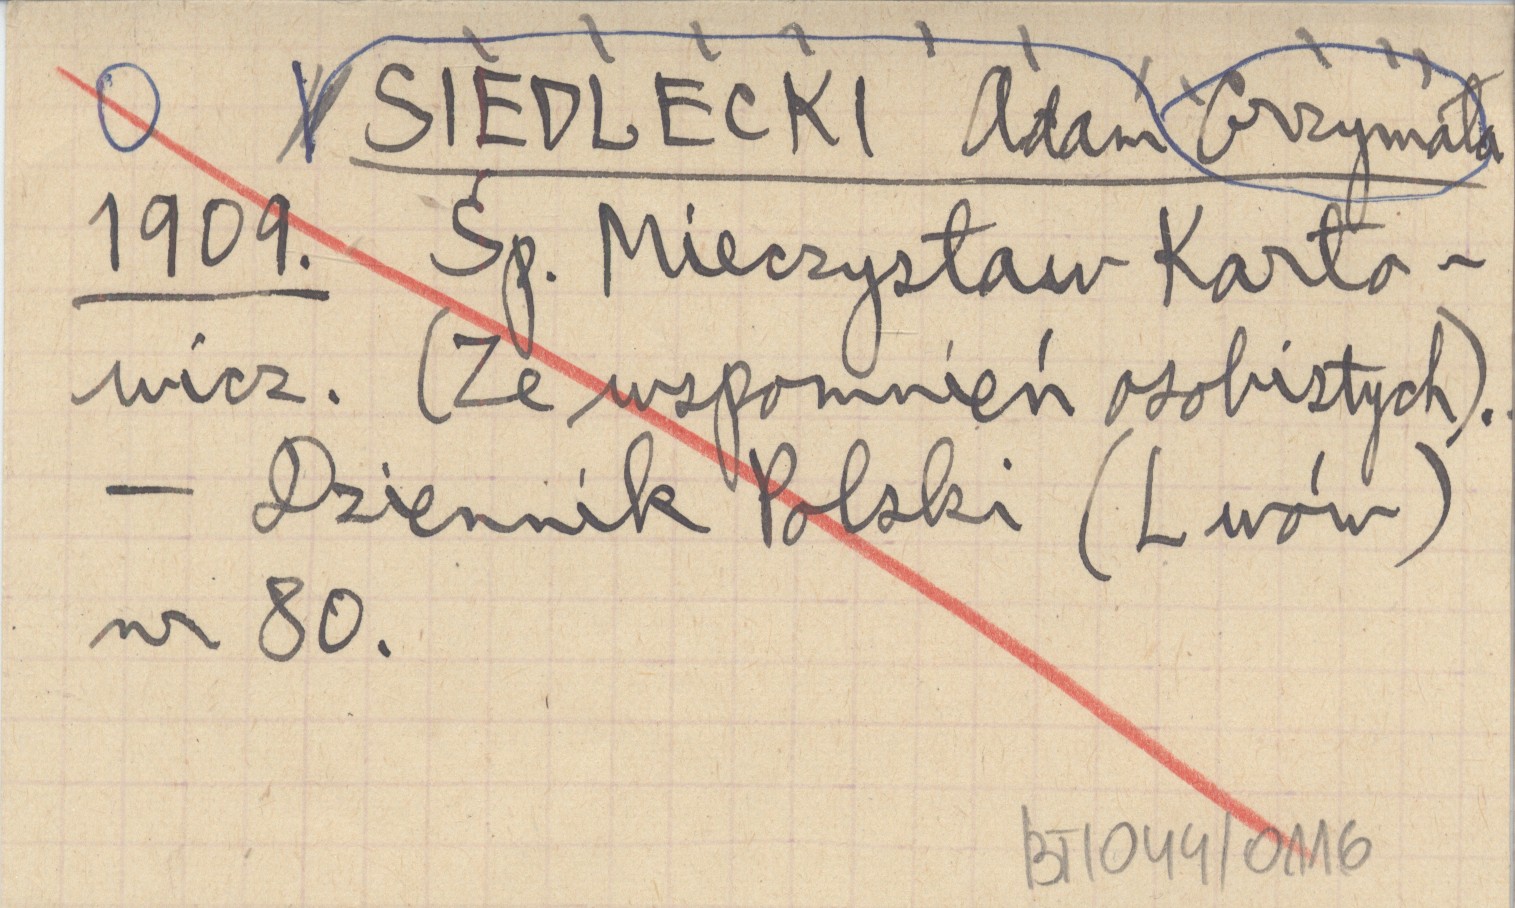 O V SIEDLECKI Adam Grzymała
1909. Śp. Mieczysław Karło-
wicz. (Ze wspomnień osobistych).
— Dziennik Polski (Lwów)
nr 80.
BT/044/0116